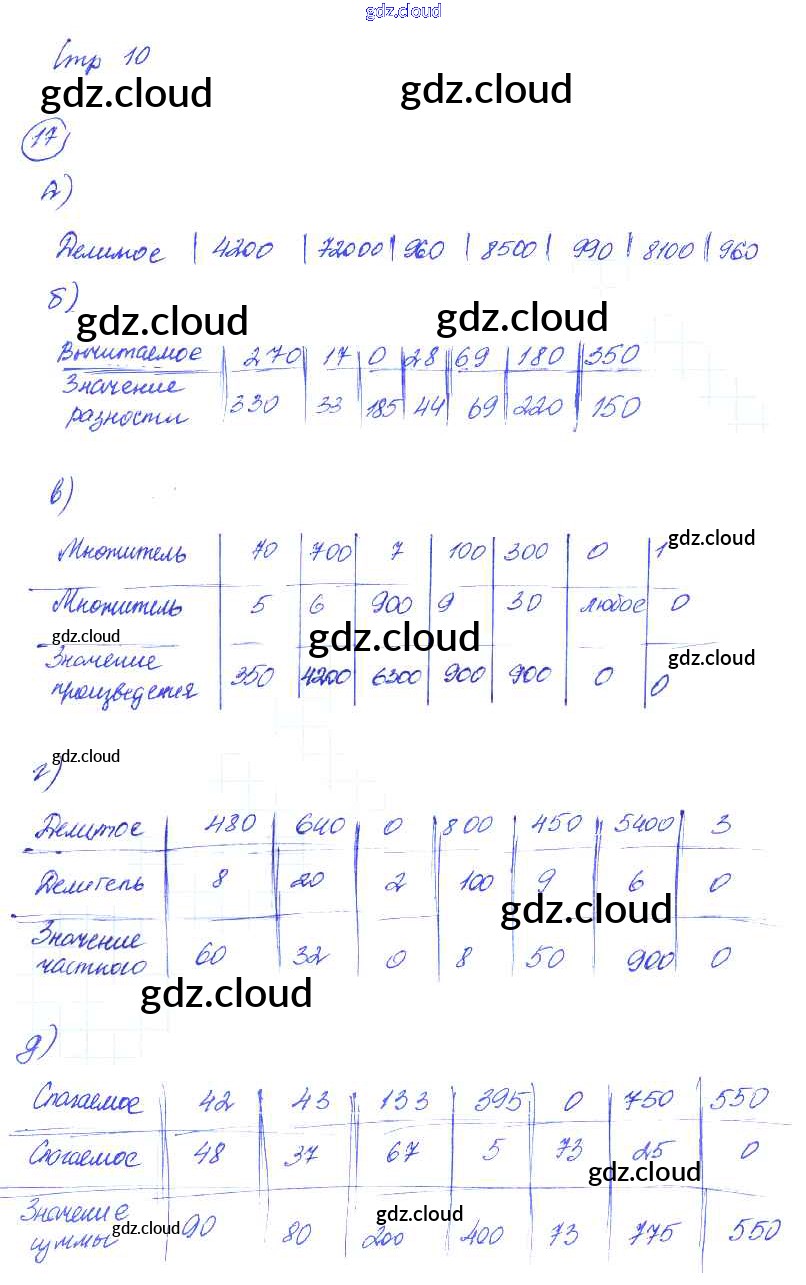 gdz.cloud
Стр 10
gdz.cloud gdz.cloud
17
а)
Делимое | 4200 | 72000 | 960 | 8500 | 990 | 8100 | 960
б)
gdz.cloud gdz.cloud
Вычитаемое 270 17 0 28 69 180 350
Значение
разности 330 33 185 44 69 220 150
в)
Множитель 70 700 7 100 300 0 1
gdz.cloud
Множитель 5 6 900 9 30 любое 0
gdz.cloud gdz.cloud gdz.cloud
Значение
произведения 350 4200 6300 900 900 0 0
gdz.cloud
г)
Делимое 480 640 0 800 450 5400 3
Делитель 8 20 2 100 9 6 0
gdz.cloud
Значение
частного 60 32 0 8 50 900 0
gdz.cloud
д)
Слагаемое 42 43 133 395 0 750 550
Слагаемое 48 37 67 5 73 25 0
gdz.cloud
Значение
суммы 90 80 200 400 73 775 550
gdz.cloud gdz.cloud